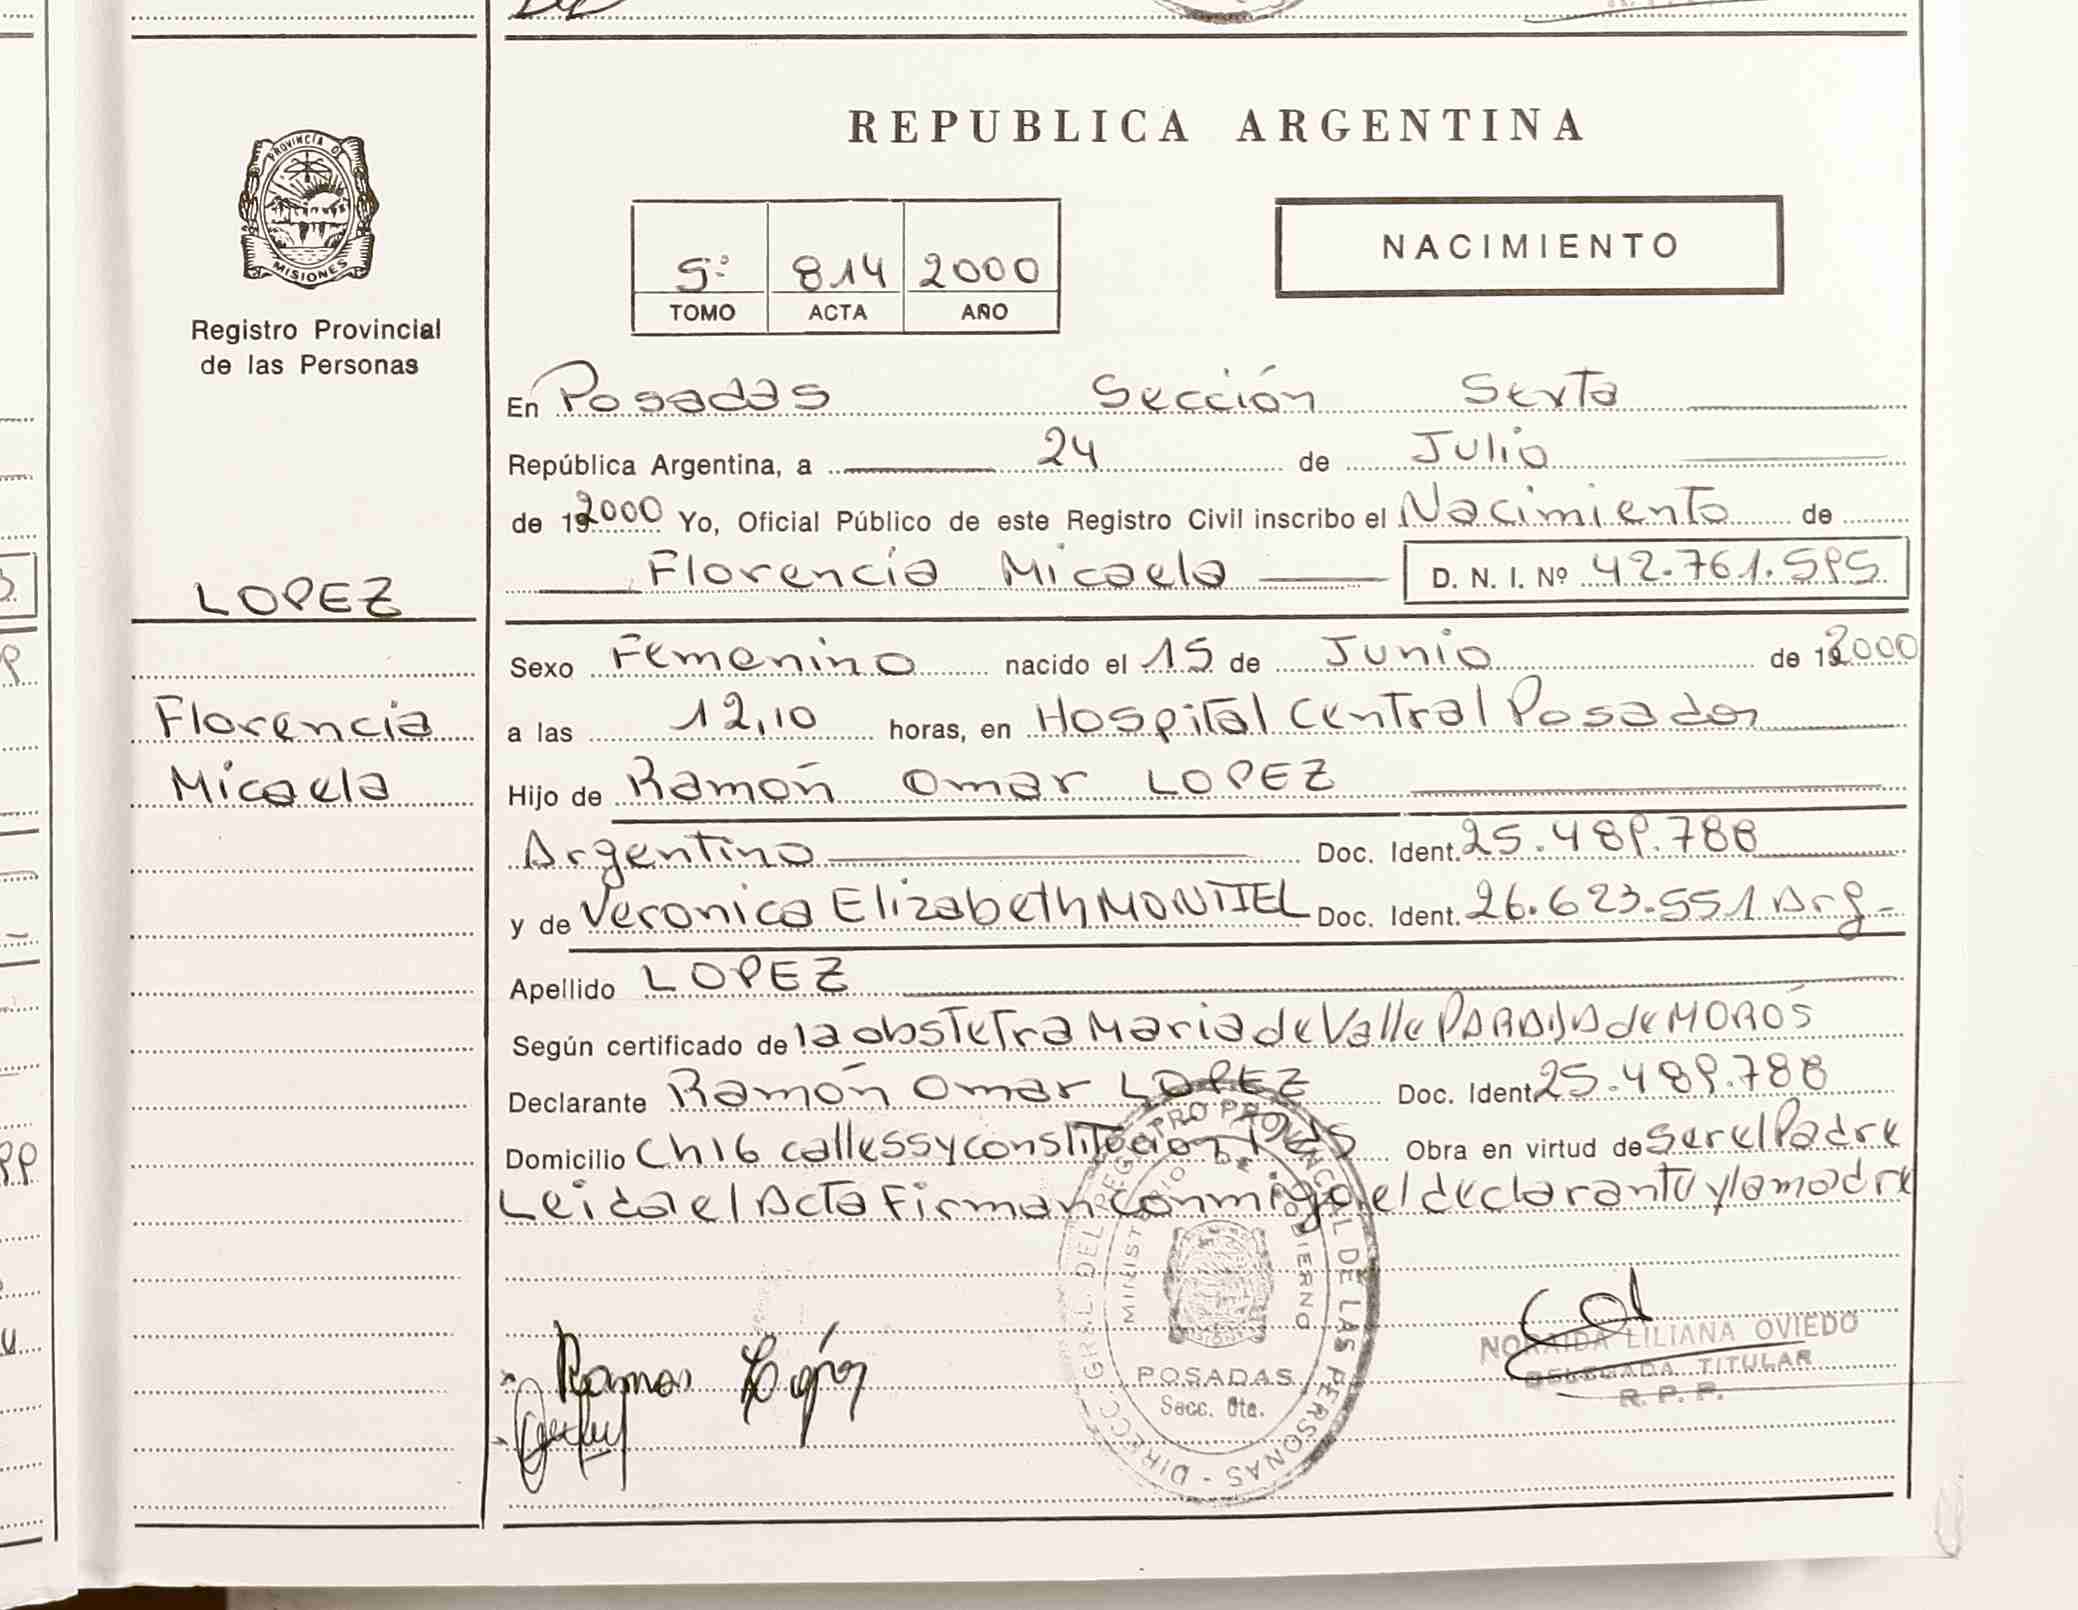 REPUBLICA ARGENTINA
PROVINCIA DE
MISIONES
Registro Provincial
de las Personas
5º 814 2000
TOMO ACTA AÑO
NACIMIENTO
En Posadas Sección Sexta
República Argentina, a 24 de Julio
de 192000 Yo, Oficial Público de este Registro Civil inscribo el Nacimiento de
Florencia Micaela D. N. I. Nº 42.761.595
LOPEZ
Florencia
Micaela
Sexo Femenino nacido el 15 de Junio de 192000
a las 12,10 horas, en Hospital Central Posadas
Hijo de Ramón Omar LOPEZ
Argentino Doc. Ident. 25.489.788
y de Veronica Elizabeth MONTIEL Doc. Ident. 26.623.551 Arg-
Apellido LOPEZ
Según certificado de la obstetra Maria de Valle de
Declarante Ramón Omar LOPEZ Doc. Ident. 25.489.788
Domicilio Ch 16 calle y constitucion Obra en virtud de ser el Padre
Leida el Acta Firman conmigo el declarante y la madre
Ramon López
DIRECC. GRAL. DEL REGISTRO PROVINCIAL DE LAS PERSONAS
MINISTERIO DE GOBIERNO
POSADAS
Secc. 6ta.
NORAIDA LILIANA OVIEDO
DELEGADA TITULAR
R. P. P.